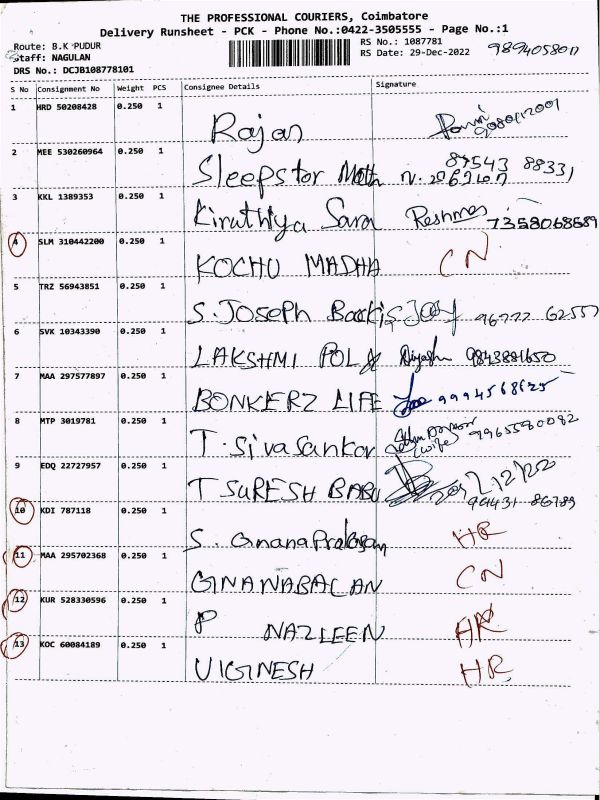 THE PROFESSIONAL COURIERS, Coimbatore
Delivery Runsheet - PCK - Phone No.:0422-3505555 - Page No.:1
Route: B.K PUDUR RS No.: 1087781 9894058011
Staff: NAGULAN RS Date: 29-Dec-2022
DRS No.: DCJB108778101
S No Consignment No Weight PCS Consignee Details Signature
1 HRD 50208428 0.250 1
Rajan
2 MEE 530260964 0.250 1 87543 88331
Sleepstor Math
3 KKL 1389353 0.250 1
Kiruthiya Sara Reshma 7358068689
4 SLM 310442200 0.250 1
KOCHU MADHA CN
5 TRZ 56943851 0.250 1
S. JOSEPH Backis JOY 96777 62557
6 SVK 10343390 0.250 1
LAKSHMI POL 9843881650
7 MAA 297577897 0.250 1
BONKERZ LIFE 9994568625
8 MTP 3019781 0.250 1
T. Siva Sankar (wife) 9965580082
9 EDQ 22727957 0.250 1
T SURESH BABU 99431 86789
10 KDI 787118 0.250 1
S. Gnana Prakasam HR
11 MAA 295702368 0.250 1
GNANABALAN CN
12 KUR 528330596 0.250 1
P NAZLEEN HR
13 KOC 60084189 0.250 1
VIGINESH HR